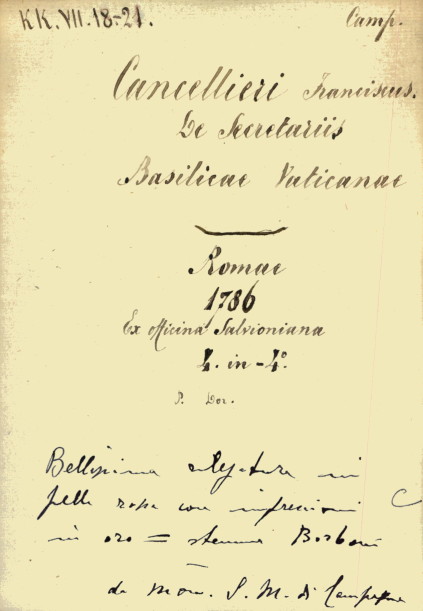 KK. VII. 18-21. Camp.
Cancellieri Franciscus.
De Secretariis
Basilicae Vaticanae
Romae
1786
Ex Officina Salvioniana
4. in-4°.
P. Dor.
Bellissima in
pelle rossa con impressioni
in oro = stemma Borboni
da Mons. S. M. di Campagna